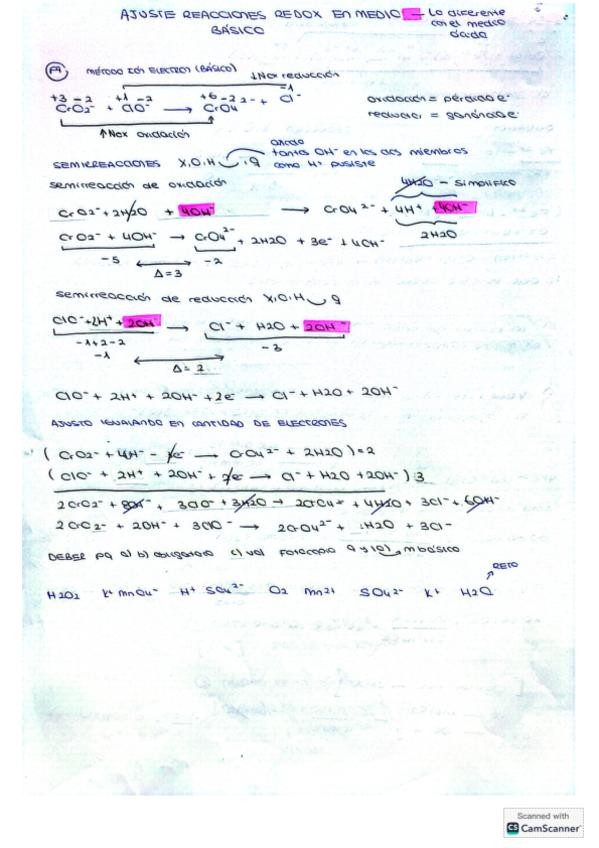 AJUSTE REACCIONES REDOX EN MEDIO — Lo diferente
BÁSICO con el medio
ácido
MÉTODO IÓN ELECTRÓN (BÁSICO)
↓Nox reducción
+3 -2 +1 -2 +6 -2 -1
CrO2⁻ + ClO⁻ → CrO4²⁻ + Cl⁻
oxidación = pérdida e⁻
reducci = ganancia e⁻
↑Nox oxidación
añado
SEMIREACCIONES X,O,H, q tantos OH⁻ en los dos miembros
como H⁺ pusiste
semirreacción de oxidación
4H2O - simplifico
CrO2⁻ + 2H2O + 4OH⁻ → CrO4²⁻ + 4H⁺ + 4OH⁻
2H2O
CrO2⁻ + 4OH⁻ → CrO4²⁻ + 2H2O + 3e⁻ + 4OH⁻
-5 -2
Δ=3
semirreacción de reducción X,O,H q
ClO⁻ + 2H⁺ + 2OH⁻ → Cl⁻ + H2O + 2OH⁻
-1+2-2 -3
-1
Δ= 2
ClO⁻ + 2H⁺ + 2OH⁻ + 2e⁻ → Cl⁻ + H2O + 2OH⁻
AJUSTO IGUALANDO EN CANTIDAD DE ELECTRONES
(ClO⁻ + 2H⁺ + 2OH⁻ + 2e⁻ → Cl⁻ + H2O + 2OH⁻) 3
2CrO2⁻ + 8OH⁻ + 3ClO⁻ + 3H2O → 2CrO4²⁻ + 4H2O + 3Cl⁻ + 6OH⁻
2CrO2⁻ + 2OH⁻ + 3ClO⁻ → 2CrO4²⁻ + H2O + 3Cl⁻
DEBER
Fotocopia 9 y 10 básico
RETO
H2O2 K⁺ MnO4⁻ H⁺ SO4²⁻ O2 Mn2+ SO4²⁻ K⁺ H2O
Scanned with
CS CamScanner